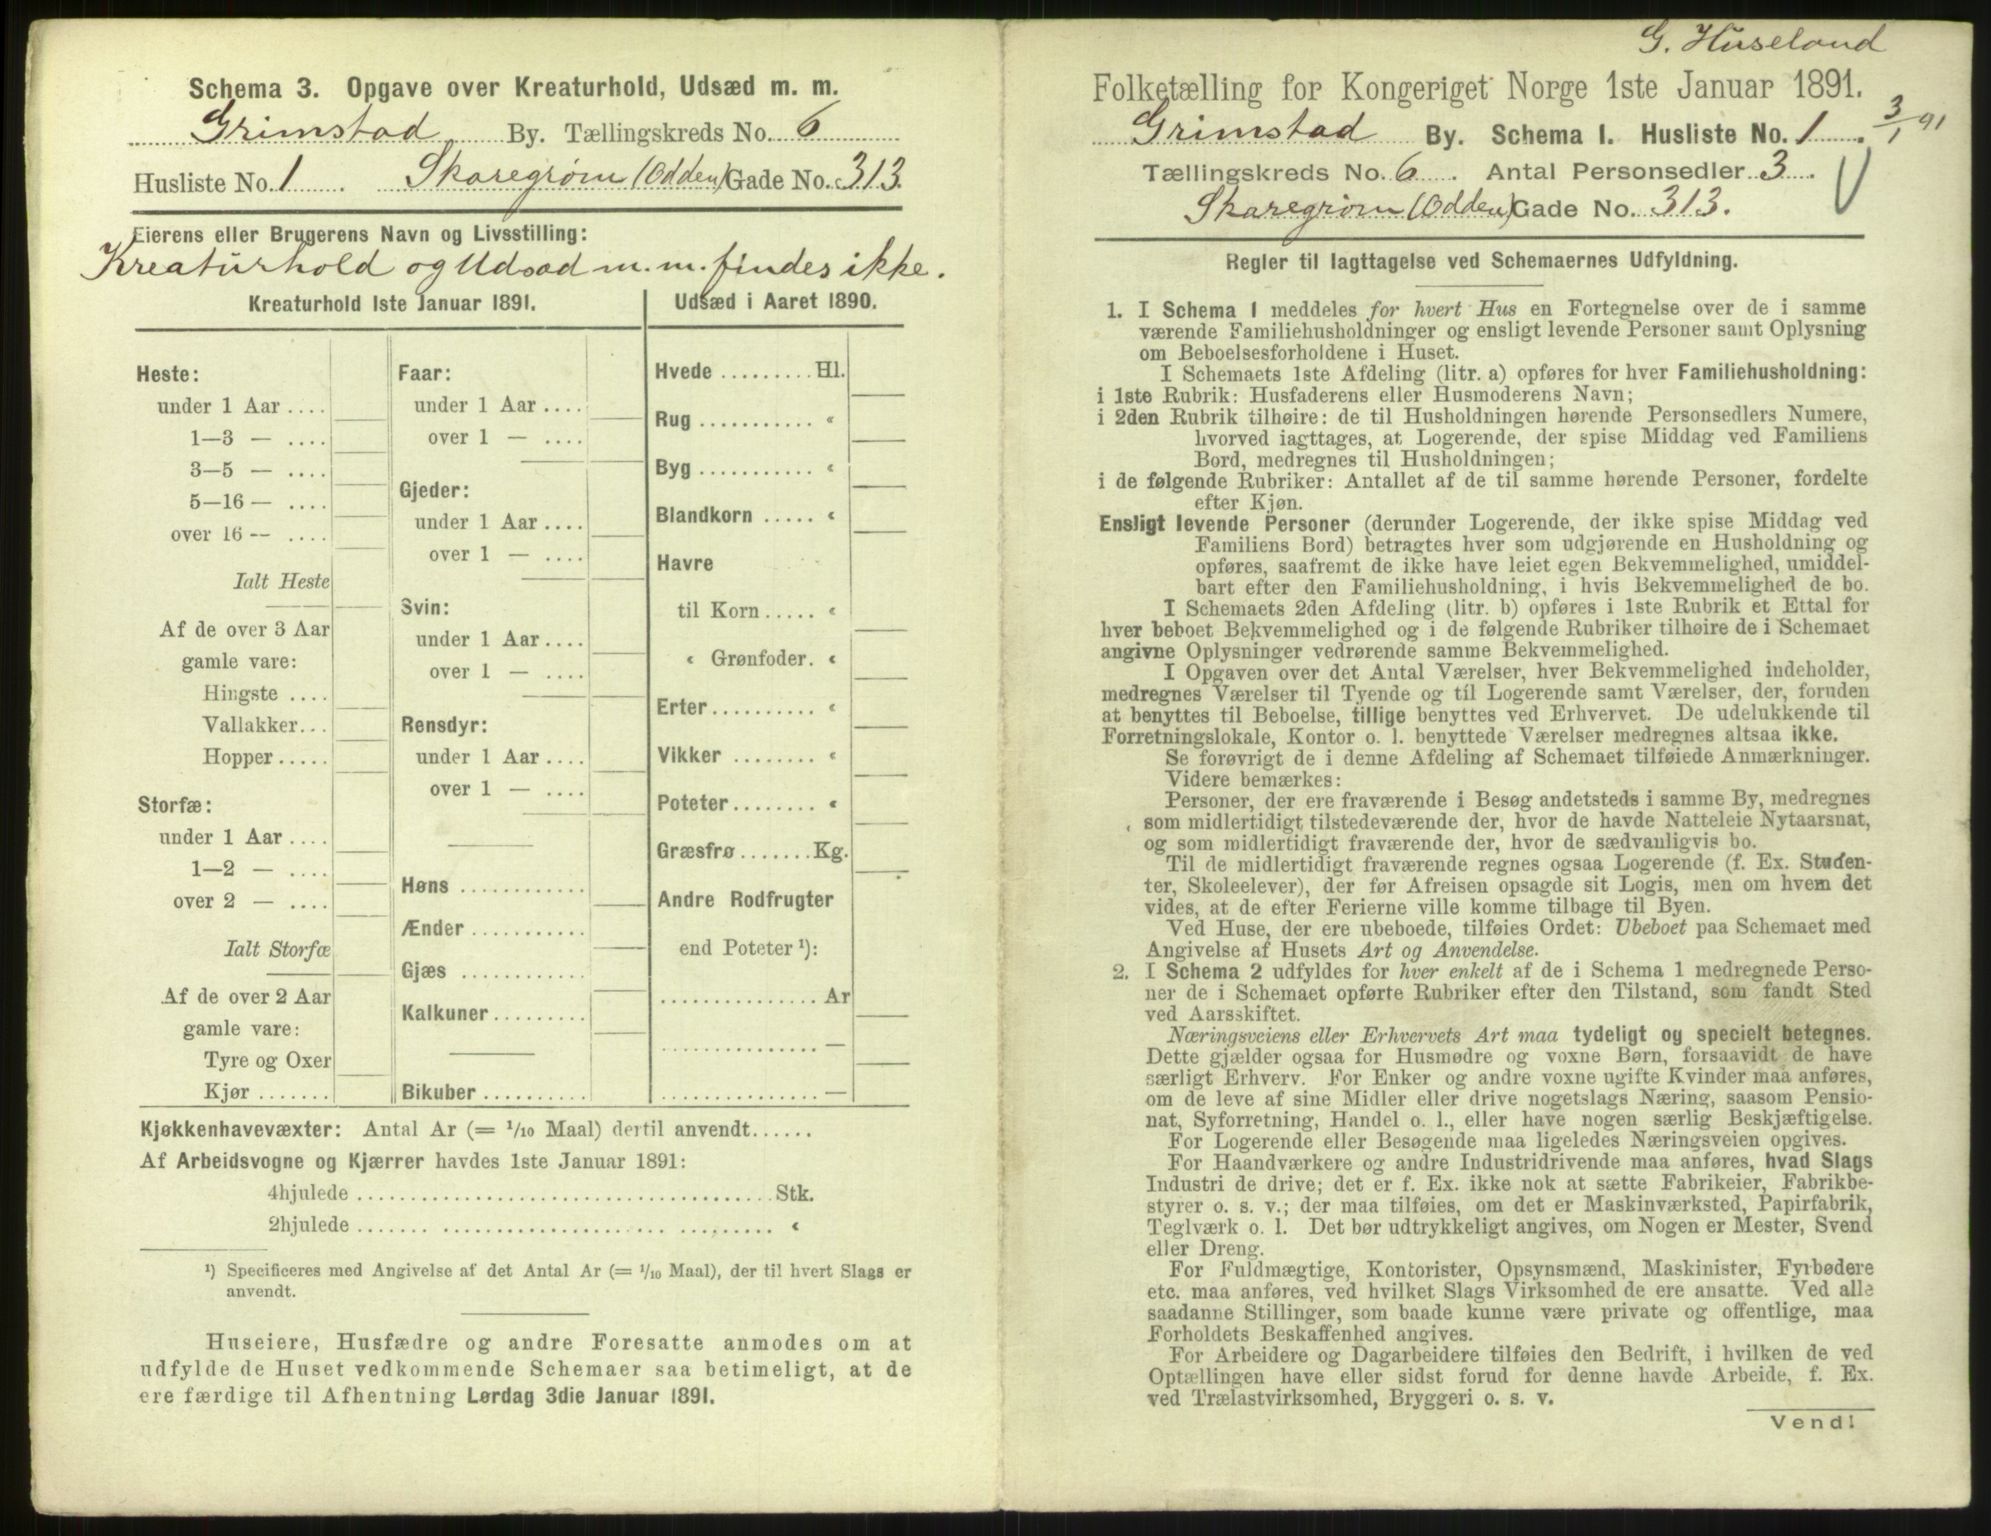 Schema 3. Opgave over Kreaturhold, Udsæd m. m.
Grimstad By. Tællingskreds No. 6
Husliste No. 1 Skaregrøm (Odden) Gade No. 313.
Eierens eller Brugerens Navn og Livsstilling:
Kreaturhold og Udsæd m. m. findes ikke.
Kreaturhold 1ste Januar 1891.
Heste:
under 1 Aar ....
1—3 — ....
3—5 — ....
5—16 — ....
over 16 — ....
Ialt Heste
Af de over 3 Aar
gamle vare:
Hingste ....
Vallakker...
Hopper .....
Storfæ:
under 1 Aar ....
1—2 — ....
over 2 — ....
Ialt Storfæ
Af de over 2 Aar
gamle vare:
Tyre og Oxer
Kjør .......
Faar:
under 1 Aar ....
over 1 — ....
Gjeder:
under 1 Aar ....
over 1 — ....
Svin:
under 1 Aar ....
over 1 — ....
Rensdyr:
under 1 Aar ....
over 1 — ....
Høns ............
Ænder ...........
Gjæs ............
Kalkuner .........
Bikuber ..........
Udsæd i Aaret 1890.
Hvede ......... Hl.
Rug ........... «
Byg ........... «
Blandkorn ..... «
Havre
til Korn ..... «
« Grønfoder. «
Erter .......... «
Vikker ........ «
Poteter ........ «
Græsfrø ....... Kg.
Andre Rodfrugter
end Poteter ¹):
............... Ar
............... —
............... —
Kjøkkenhavevæxter: Antal Ar (= 1/10 Maal) dertil anvendt ......
Af Arbeidsvogne og Kjærrer havdes 1ste Januar 1891:
4hjulede ........................................ Stk.
2hjulede ........................................ «
¹) Specificeres med Angivelse af det Antal Ar (= 1/10 Maal), der til hvert Slags er
anvendt.
Huseiere, Husfædre og andre Foresatte anmodes om at
udfylde de Huset vedkommende Schemaer saa betimeligt, at de
ere færdige til Afhentning Lørdag 3die Januar 1891.
G. Huseland
Folketælling for Kongeriget Norge 1ste Januar 1891.
Grimstad By. Schema 1. Husliste No. 1. 3/1 91
Tællingskreds No. 6. Antal Personsedler 3.
Skaregrøm (Odden) Gade No. 313.
Regler til Iagttagelse ved Schemaernes Udfyldning.
1. I Schema 1 meddeles for hvert Hus en Fortegnelse over de i samme
værende Familiehusholdninger og ensligt levende Personer samt Oplysning
om Beboelsesforholdene i Huset.
I Schemaets 1ste Afdeling (litr. a) opføres for hver Familiehusholdning:
i 1ste Rubrik: Husfaderens eller Husmoderens Navn;
i 2den Rubrik tilhøire: de til Husholdningen hørende Personsedlers Numere,
hvorved iagttages, at Logerende, der spise Middag ved Familiens
Bord, medregnes til Husholdningen;
i de følgende Rubriker: Antallet af de til samme hørende Personer, fordelte
efter Kjøn.
Ensligt levende Personer (derunder Logerende, der ikke spise Middag ved
Familiens Bord) betragtes hver som udgjørende en Husholdning og
opføres, saafremt de ikke have leiet egen Bekvemmelighed, umiddel-
bart efter den Familiehusholdning, i hvis Bekvemmelighed de bo.
I Schemaets 2den Afdeling (litr. b) opføres i 1ste Rubrik et Ettal for
hver beboet Bekvemmelighed og i de følgende Rubriker tilhøire de i Schemaet
angivne Oplysninger vedrørende samme Bekvemmelighed.
I Opgaven over det Antal Værelser, hver Bekvemmelighed indeholder,
medregnes Værelser til Tyende og til Logerende samt Værelser, der, foruden
at benyttes til Beboelse, tillige benyttes ved Erhvervet. De udelukkende til
Forretningslokale, Kontor o. l. benyttede Værelser medregnes altsaa ikke.
Se forøvrigt de i denne Afdeling af Schemaet tilføiede Anmærkninger.
Videre bemærkes:
Personer, der ere fraværende i Besøg andetsteds i samme By, medregnes
som midlertidigt tilstedeværende der, hvor de havde Natteleie Nytaarsnat,
og som midlertidigt fraværende der, hvor de sædvanligvis bo.
Til de midlertidigt fraværende regnes ogsaa Logerende (f. Ex. Studen-
ter, Skoleelever), der før Afreisen opsagde sit Logis, men om hvem det
vides, at de efter Ferierne ville komme tilbage til Byen.
Ved Huse, der ere ubeboede, tilføies Ordet: Ubeboet paa Schemaet med
Angivelse af Husets Art og Anvendelse.
2. I Schema 2 udfyldes for hver enkelt af de i Schema 1 medregnede Perso-
ner de i Schemaet opførte Rubriker efter den Tilstand, som fandt Sted
ved Aarsskiftet.
Næringsveiens eller Erhvervets Art maa tydeligt og specielt betegnes.
Dette gjælder ogsaa for Husmødre og voxne Børn, forsaavidt de have
særligt Erhverv. For Enker og andre voxne ugifte Kvinder maa anføres,
om de leve af sine Midler eller drive nogetslags Næring, saasom Pensio-
nat, Syforretning, Handel o. l., eller have nogen særlig Beskjæftigelse.
For Logerende eller Besøgende maa ligeledes Næringsveien opgives.
For Haandværkere og andre Industridrivende maa anføres, hvad Slags
Industri de drive; det er f. Ex. ikke nok at sætte Fabrikeier, Fabrikbe-
styrer o. s. v.; der maa tilføies, om det er Maskinværksted, Papirfabrik,
Teglværk o. l. Det bør udtrykkeligt angives, om Nogen er Mester, Svend
eller Dreng.
For Fuldmægtige, Kontorister, Opsynsmænd, Maskinister, Fyrbødere
etc. maa anføres, ved hvilket Slags Virksomhed de ere ansatte. Ved alle
saadanne Stillinger, som baade kunne være private og offentlige, maa
Forholdets Beskaffenhed angives.
For Arbeidere og Dagarbeidere tilføies den Bedrift, i hvilken de ved
Optællingen have eller sidst forud for denne havde Arbeide, f. Ex.
ved Trælastvirksomhed, Bryggeri o. s. v.
Vend!